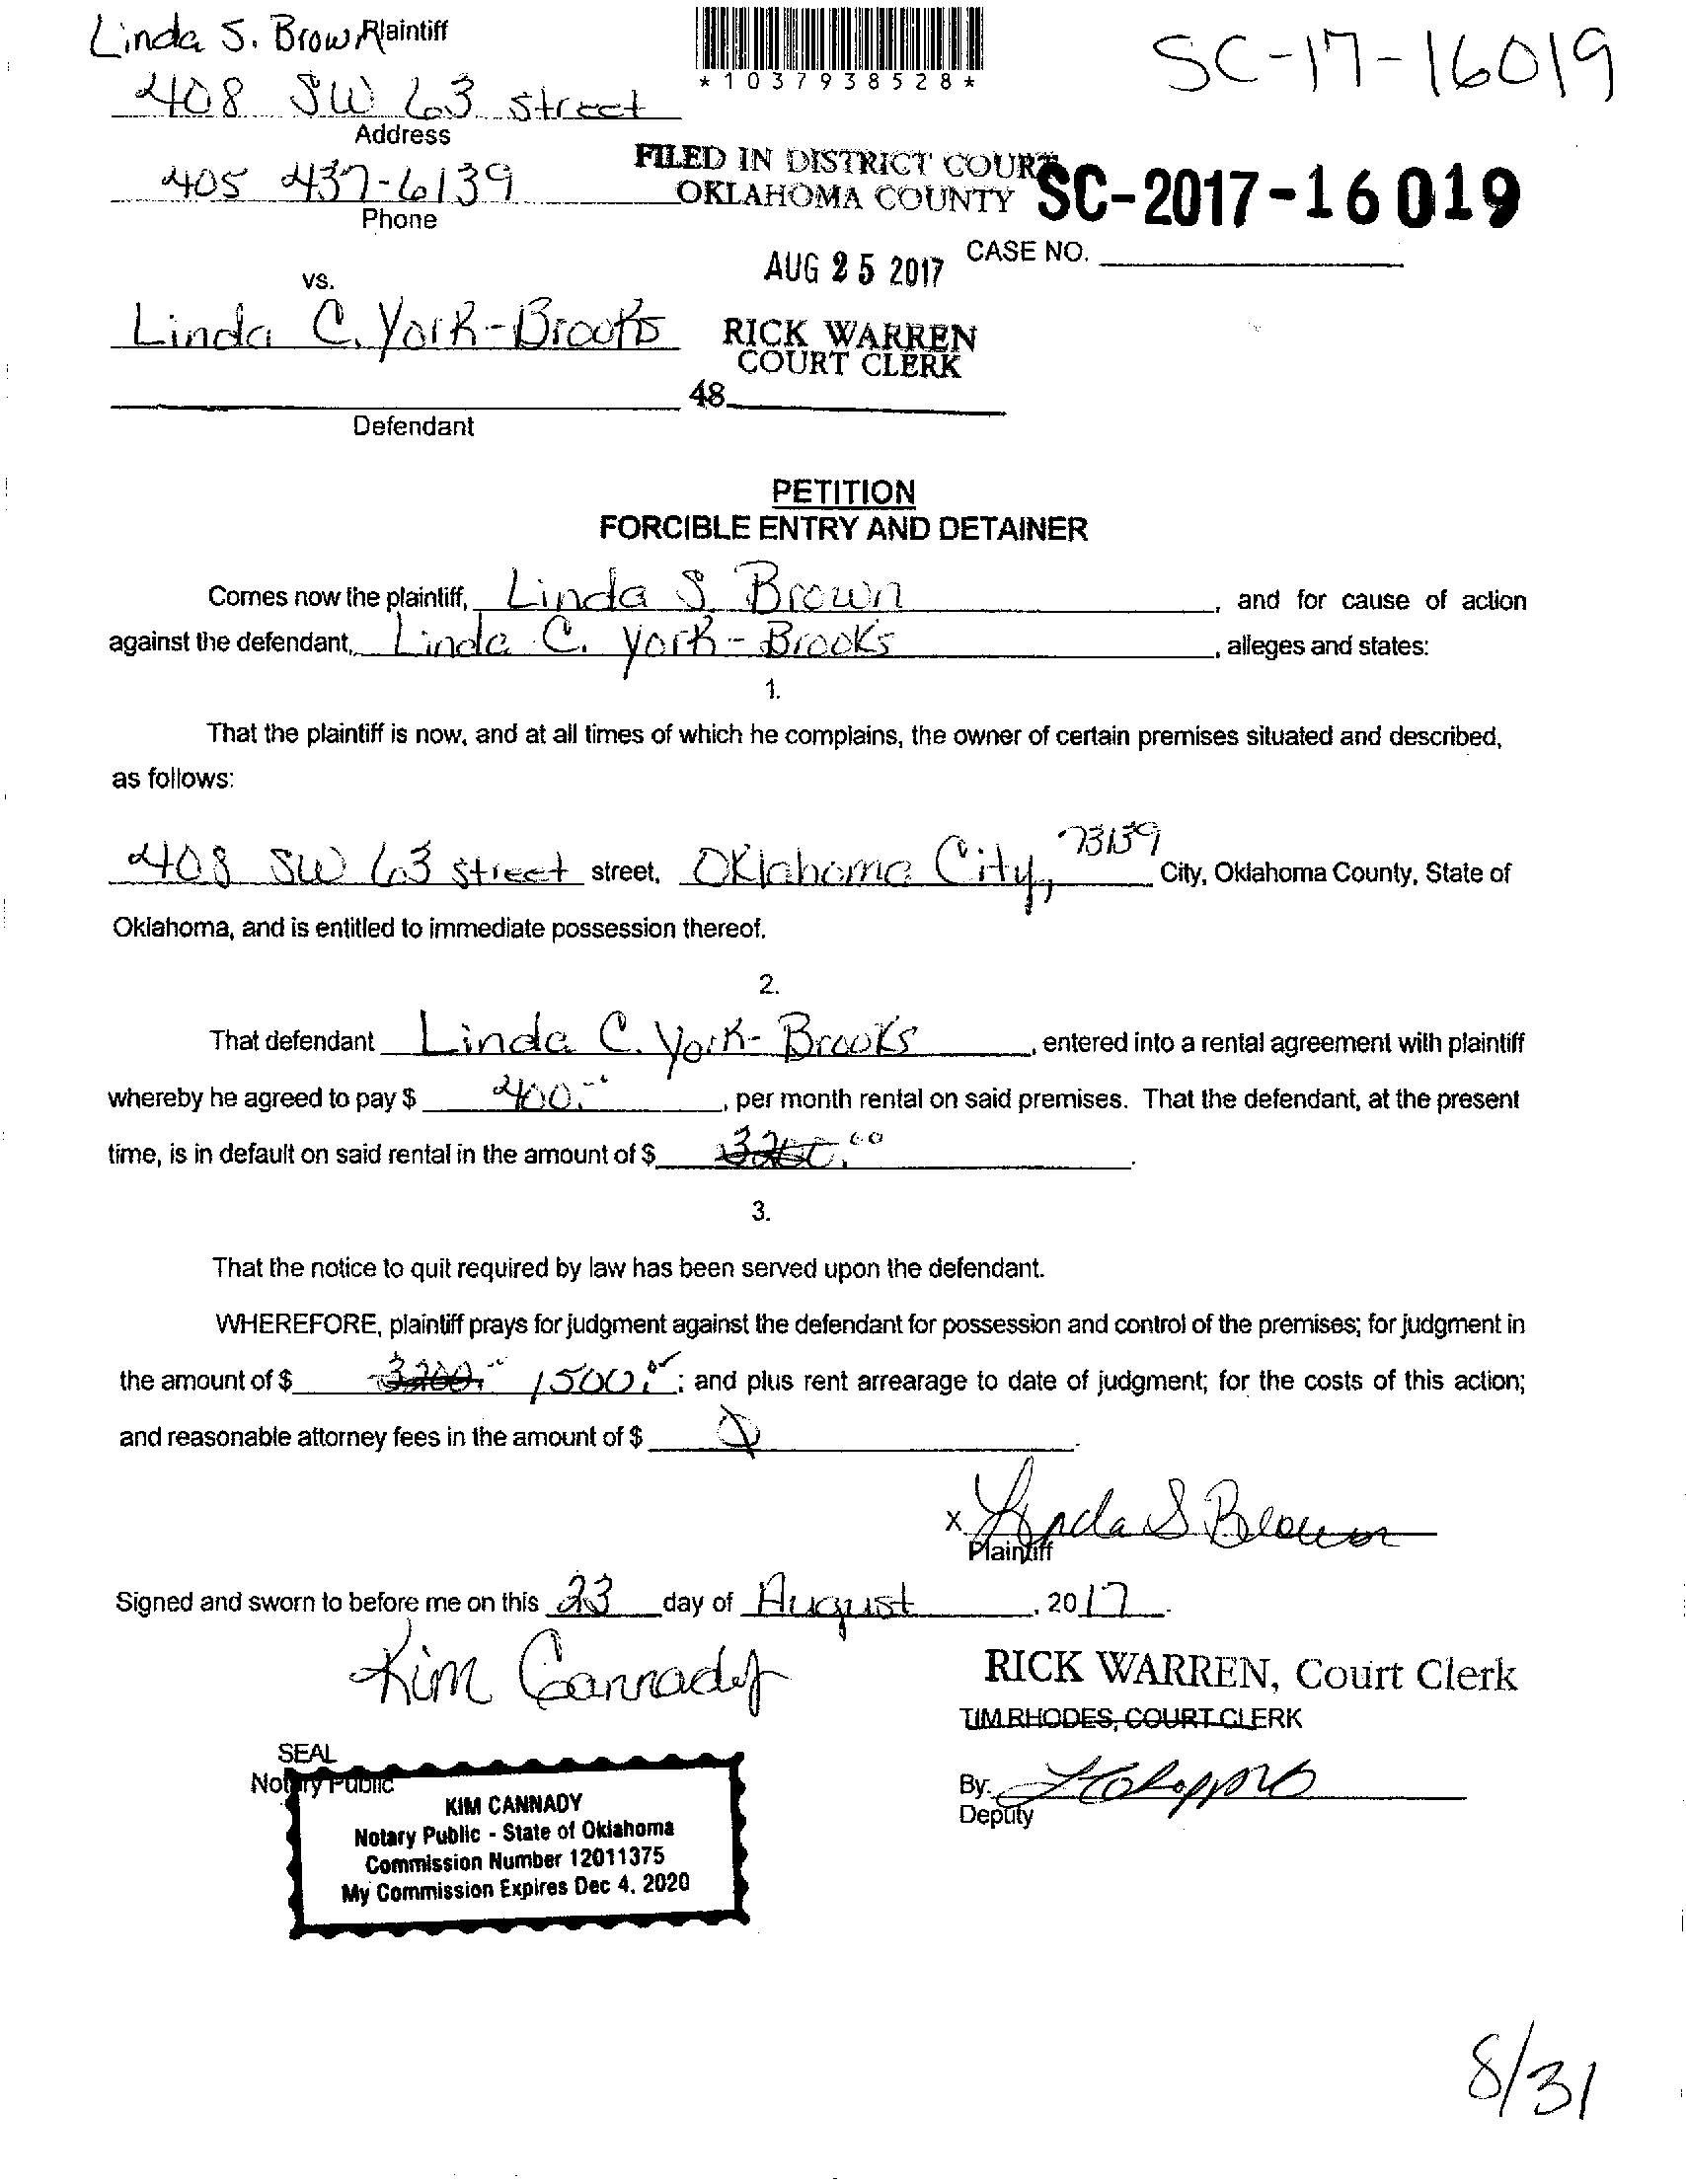 Linda S. Brow Plaintiff
*1037938528*
SC-17-16019
408 SW 63 street
Address
FILED IN DISTRICT COURT
OKLAHOMA COUNTY
SC-2017-16019
405 437-6139
Phone
AUG 25 2017
CASE NO.
vs.
Linda C. York-Brooks
RICK WARREN
COURT CLERK
48
Defendant
PETITION
FORCIBLE ENTRY AND DETAINER
Comes now the plaintiff, Linda S. Brown, and for cause of action
against the defendant, Linda C. York-Brooks, alleges and states:
1.
That the plaintiff is now, and at all times of which he complains, the owner of certain premises situated and described,
as follows:
408 SW 63 street street, Oklahoma City, 73139 City, Oklahoma County, State of
Oklahoma, and is entitled to immediate possession thereof.
2.
That defendant Linda C. York-Brooks, entered into a rental agreement with plaintiff
whereby he agreed to pay $ 400.--, per month rental on said premises. That the defendant, at the present
time, is in default on said rental in the amount of $ 3200.00.
3.
That the notice to quit required by law has been served upon the defendant.
WHEREFORE, plaintiff prays for judgment against the defendant for possession and control of the premises; for judgment in
the amount of $ 3200.-- 1500.00; and plus rent arrearage to date of judgment; for the costs of this action;
and reasonable attorney fees in the amount of $
x Linda S Brown
Plaintiff
Signed and sworn to before me on this 23 day of August, 2017.
Kim Cannady
RICK WARREN, Court Clerk
TIM RHODES, COURT CLERK
SEAL
Notary Public
By:
Deputy
KIM CANNADY
Notary Public - State of Oklahoma
Commission Number 12011375
My Commission Expires Dec 4, 2020
8/31